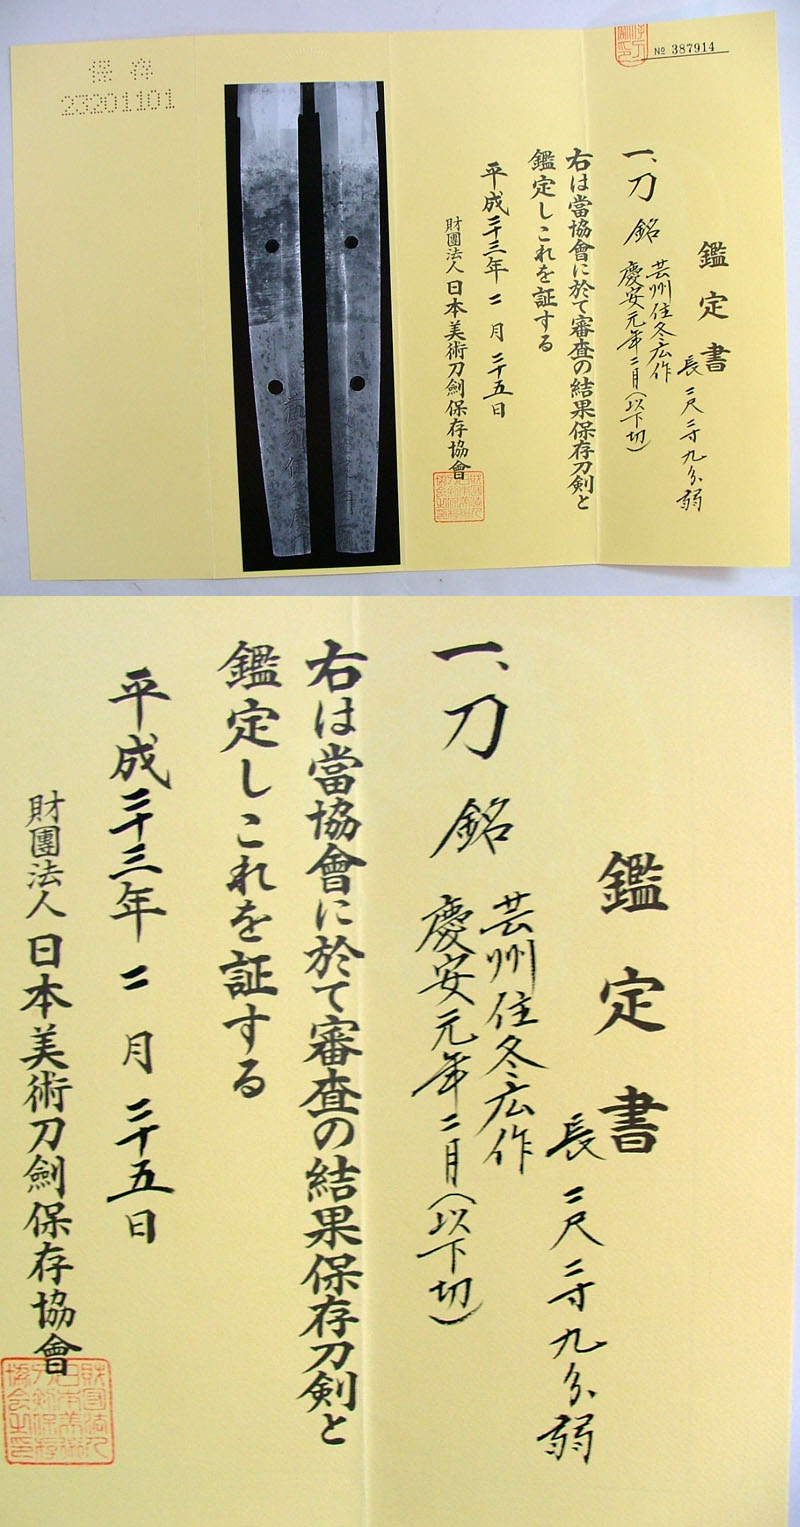 № 387914
鑑定書
長二尺二寸九分弱
一、刀 銘 芸州住冬広作
慶安元年二月(以下切)
右は當協會に於て審査の結果保存刀剣と
鑑定しこれを証する
平成二十三年二月二十五日
財團法人日本美術刀劍保存協會
保存
23201101
鑑定書
長二尺二寸九分弱
一、刀 銘 芸州住冬広作
慶安元年二月(以下切)
右は當協會に於て審査の結果保存刀剣と
鑑定しこれを証する
平成二十三年二月二十五日
財團法人日本美術刀劍保存協會